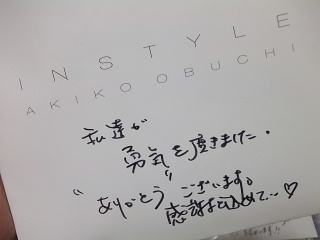 INSTYLE
AKIKO OBUCHI
私達が
勇気を頂きました。
"ありがとう"ございます。
感謝を込めて〜♡